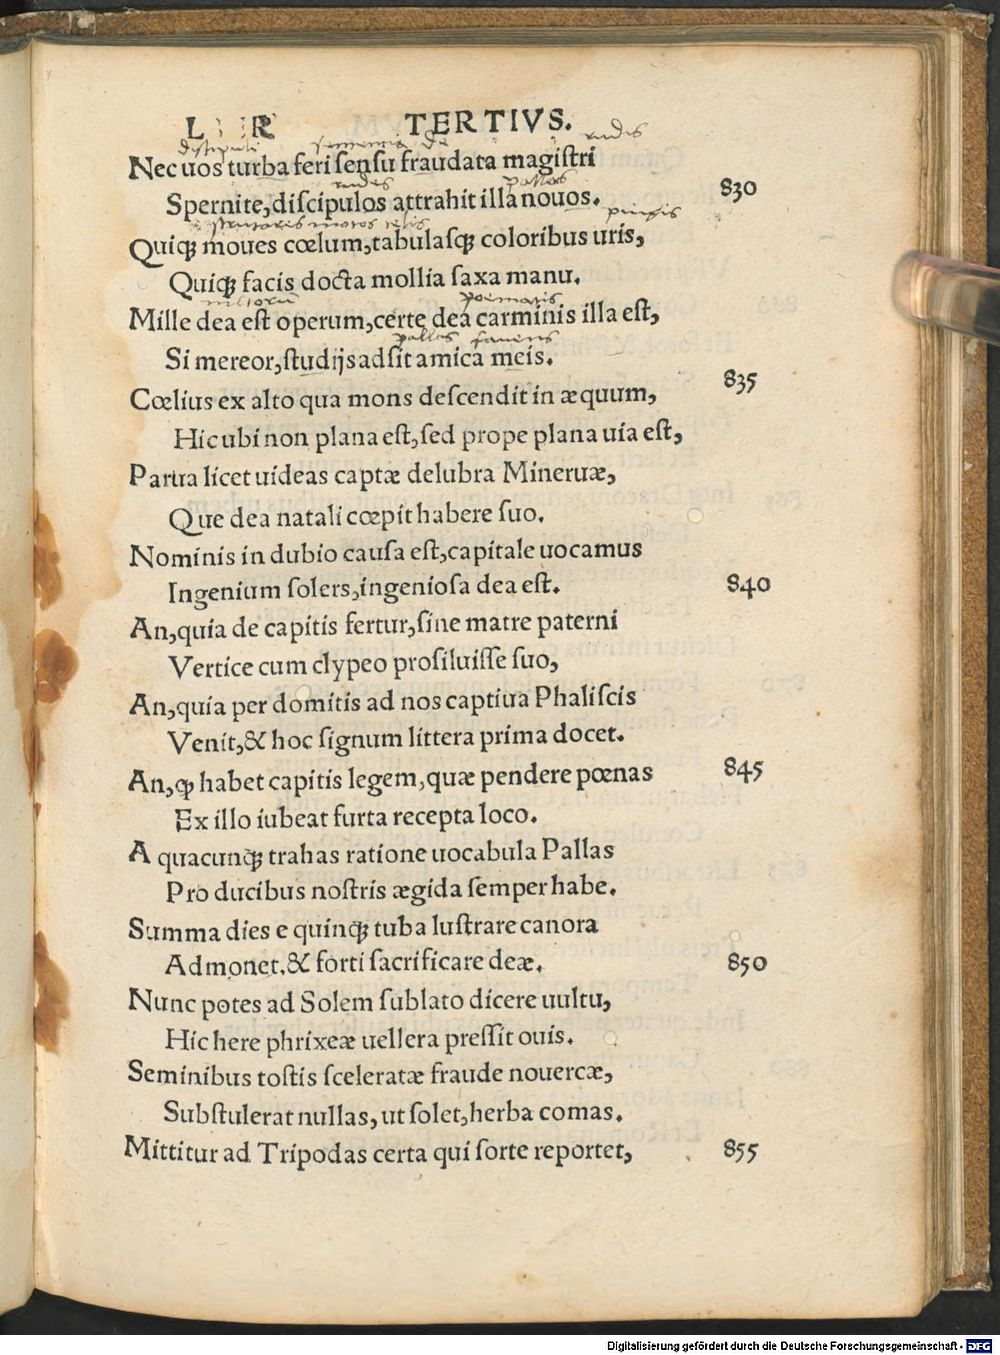 TERTIVS.
discipuli
rudis
Nec uos turba feri sensu fraudata magistri
rudes pallas
Spernite, discipulos attrahit illa nouos. 830
pingis
Quiqꝫ moues cœlum, tabulasqꝫ coloribus uris,
Quiqꝫ facis docta mollia saxa manu.
poematis
Mille dea est operum, certe dea carminis illa est,
pallas fauens
Si mereor, studijs adsit amica meis.
Cœlius ex alto qua mons descendit in æquum, 835
Hic ubi non plana est, sed prope plana uia est,
Parua licet uideas captæ delubra Mineruæ,
Que dea natali cœpit habere suo.
Nominis in dubio causa est, capitale uocamus
Ingenium solers, ingeniosa dea est. 840
An, quia de capitis fertur, sine matre paterni
Vertice cum clypeo prosiluisse suo,
An, quia per domitis ad nos captiua Phaliscis
Venit, & hoc signum littera prima docet.
An, ꝙ habet capitis legem, quæ pendere pœnas 845
Ex illo iubeat furta recepta loco.
A quacunqꝫ trahas ratione uocabula Pallas
Pro ducibus nostris ægida semper habe.
Summa dies e quinqꝫ tuba lustrare canora
Admonet, & forti sacrificare deæ. 850
Nunc potes ad Solem sublato dicere uultu,
Hic here phrixeæ uellera pressit ouis.
Seminibus tostis sceleratæ fraude nouercæ,
Substulerat nullas, ut solet, herba comas.
Mittitur ad Tripodas certa qui sorte reportet, 855
Digitalisierung gefördert durch die Deutsche Forschungsgemeinschaft - DFG